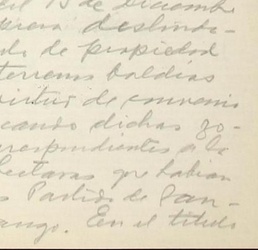 15 de Diciembre
deslinda-
do de propiedad
terrenos baldíos
virtud de convenio
cando dichas zo-
rrespondientes a la
hectaras qe habian
Partido de San-
ango. En el título